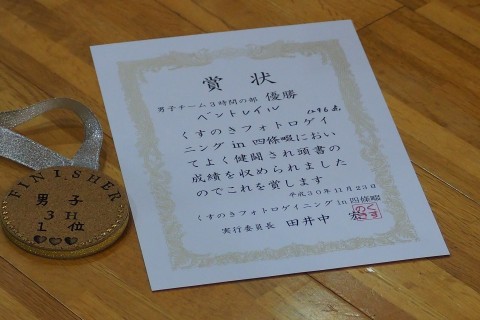 賞状
男子チーム3時間の部 優勝
ベントレイル
くすのきフォトロゲイ
ニング in 四條畷におい
てよく健闘され頭書の
成績を収められました
のでこれを賞します
平成30年11月23日
くすのきフォトロゲイニングin四條畷
実行委員長 田井中
FINISHER
男子
3H
1位